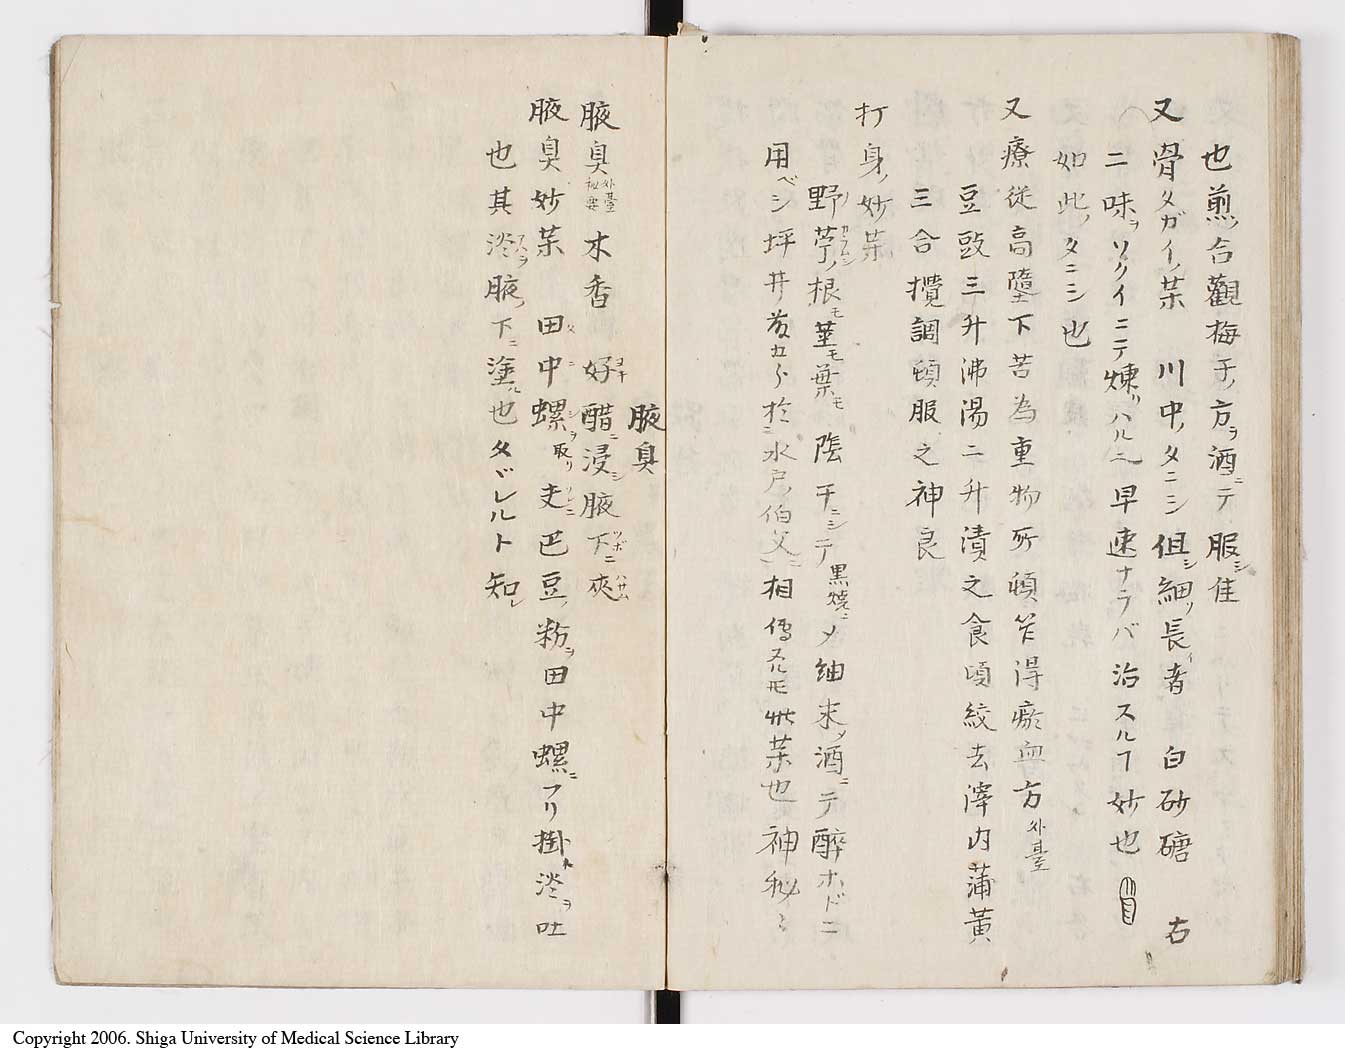 也煎ノ合觀梅子ノ方ヲ酒ニテ服シ佳
又骨タガイノ薬 川中ノタニシ但シ細ソ長イ者 白砂糖 右
二味ヲソクイニテ煉リハル也早速ナラバ治スルコ妙也
如此ノタニシ也
又療従高墮下苦為重物所頓笮得瘀血方 外臺
豆豉三升沸湯二升漬之食頃絞去滓内蒲黄
三合攪調頓服之神良
打身ノ妙薬
野苧ノ根モ茎モ葉モ陰干ニシテ黒焼ニメ細末ノ酒ニテ醉ホドニ
用ベシ坪井 於ニ水戸ノ伯父ニ相傳 此薬也神秘〻
腋臭
腋臭 外臺秘要 木香 好ヨキ醋ニ浸シ腋下ニ夾ハサム
腋臭妙薬 田中螺タニシヲ取リ 巴豆ノ粉ヲ田中螺ニフリ掛ケ ヲ吐
也其 ヲ腋ノ下ニ塗ル也タヾレルト知レ
Copyright 2006. Shiga University of Medical Science Library